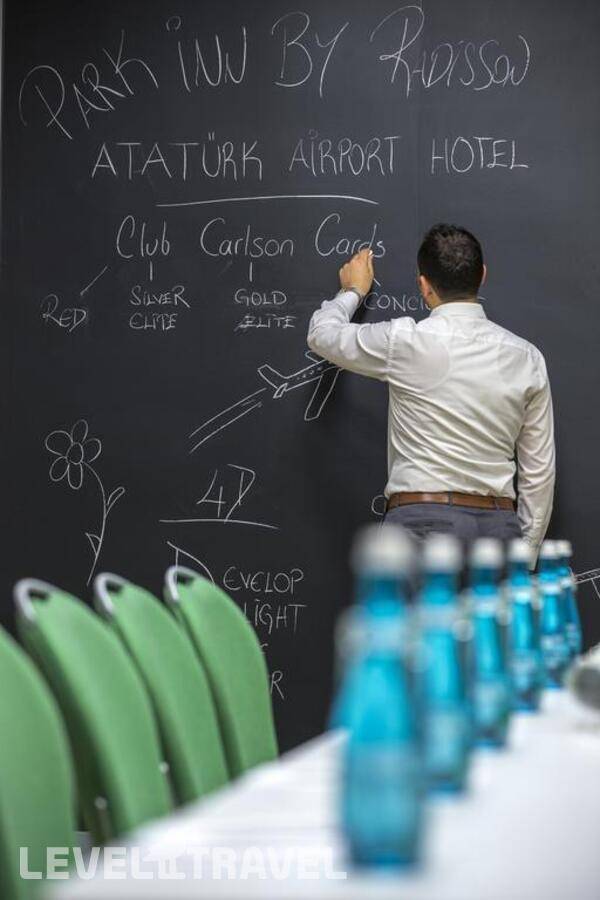 PARK INN BY RADISSON
ATATÜRK AIRPORT HOTEL
Club Carlson Cards
RED
SILVER
ELITE
GOLD
ELITE
4D
EVELOP
LIGHT
LEVEL TRAVEL